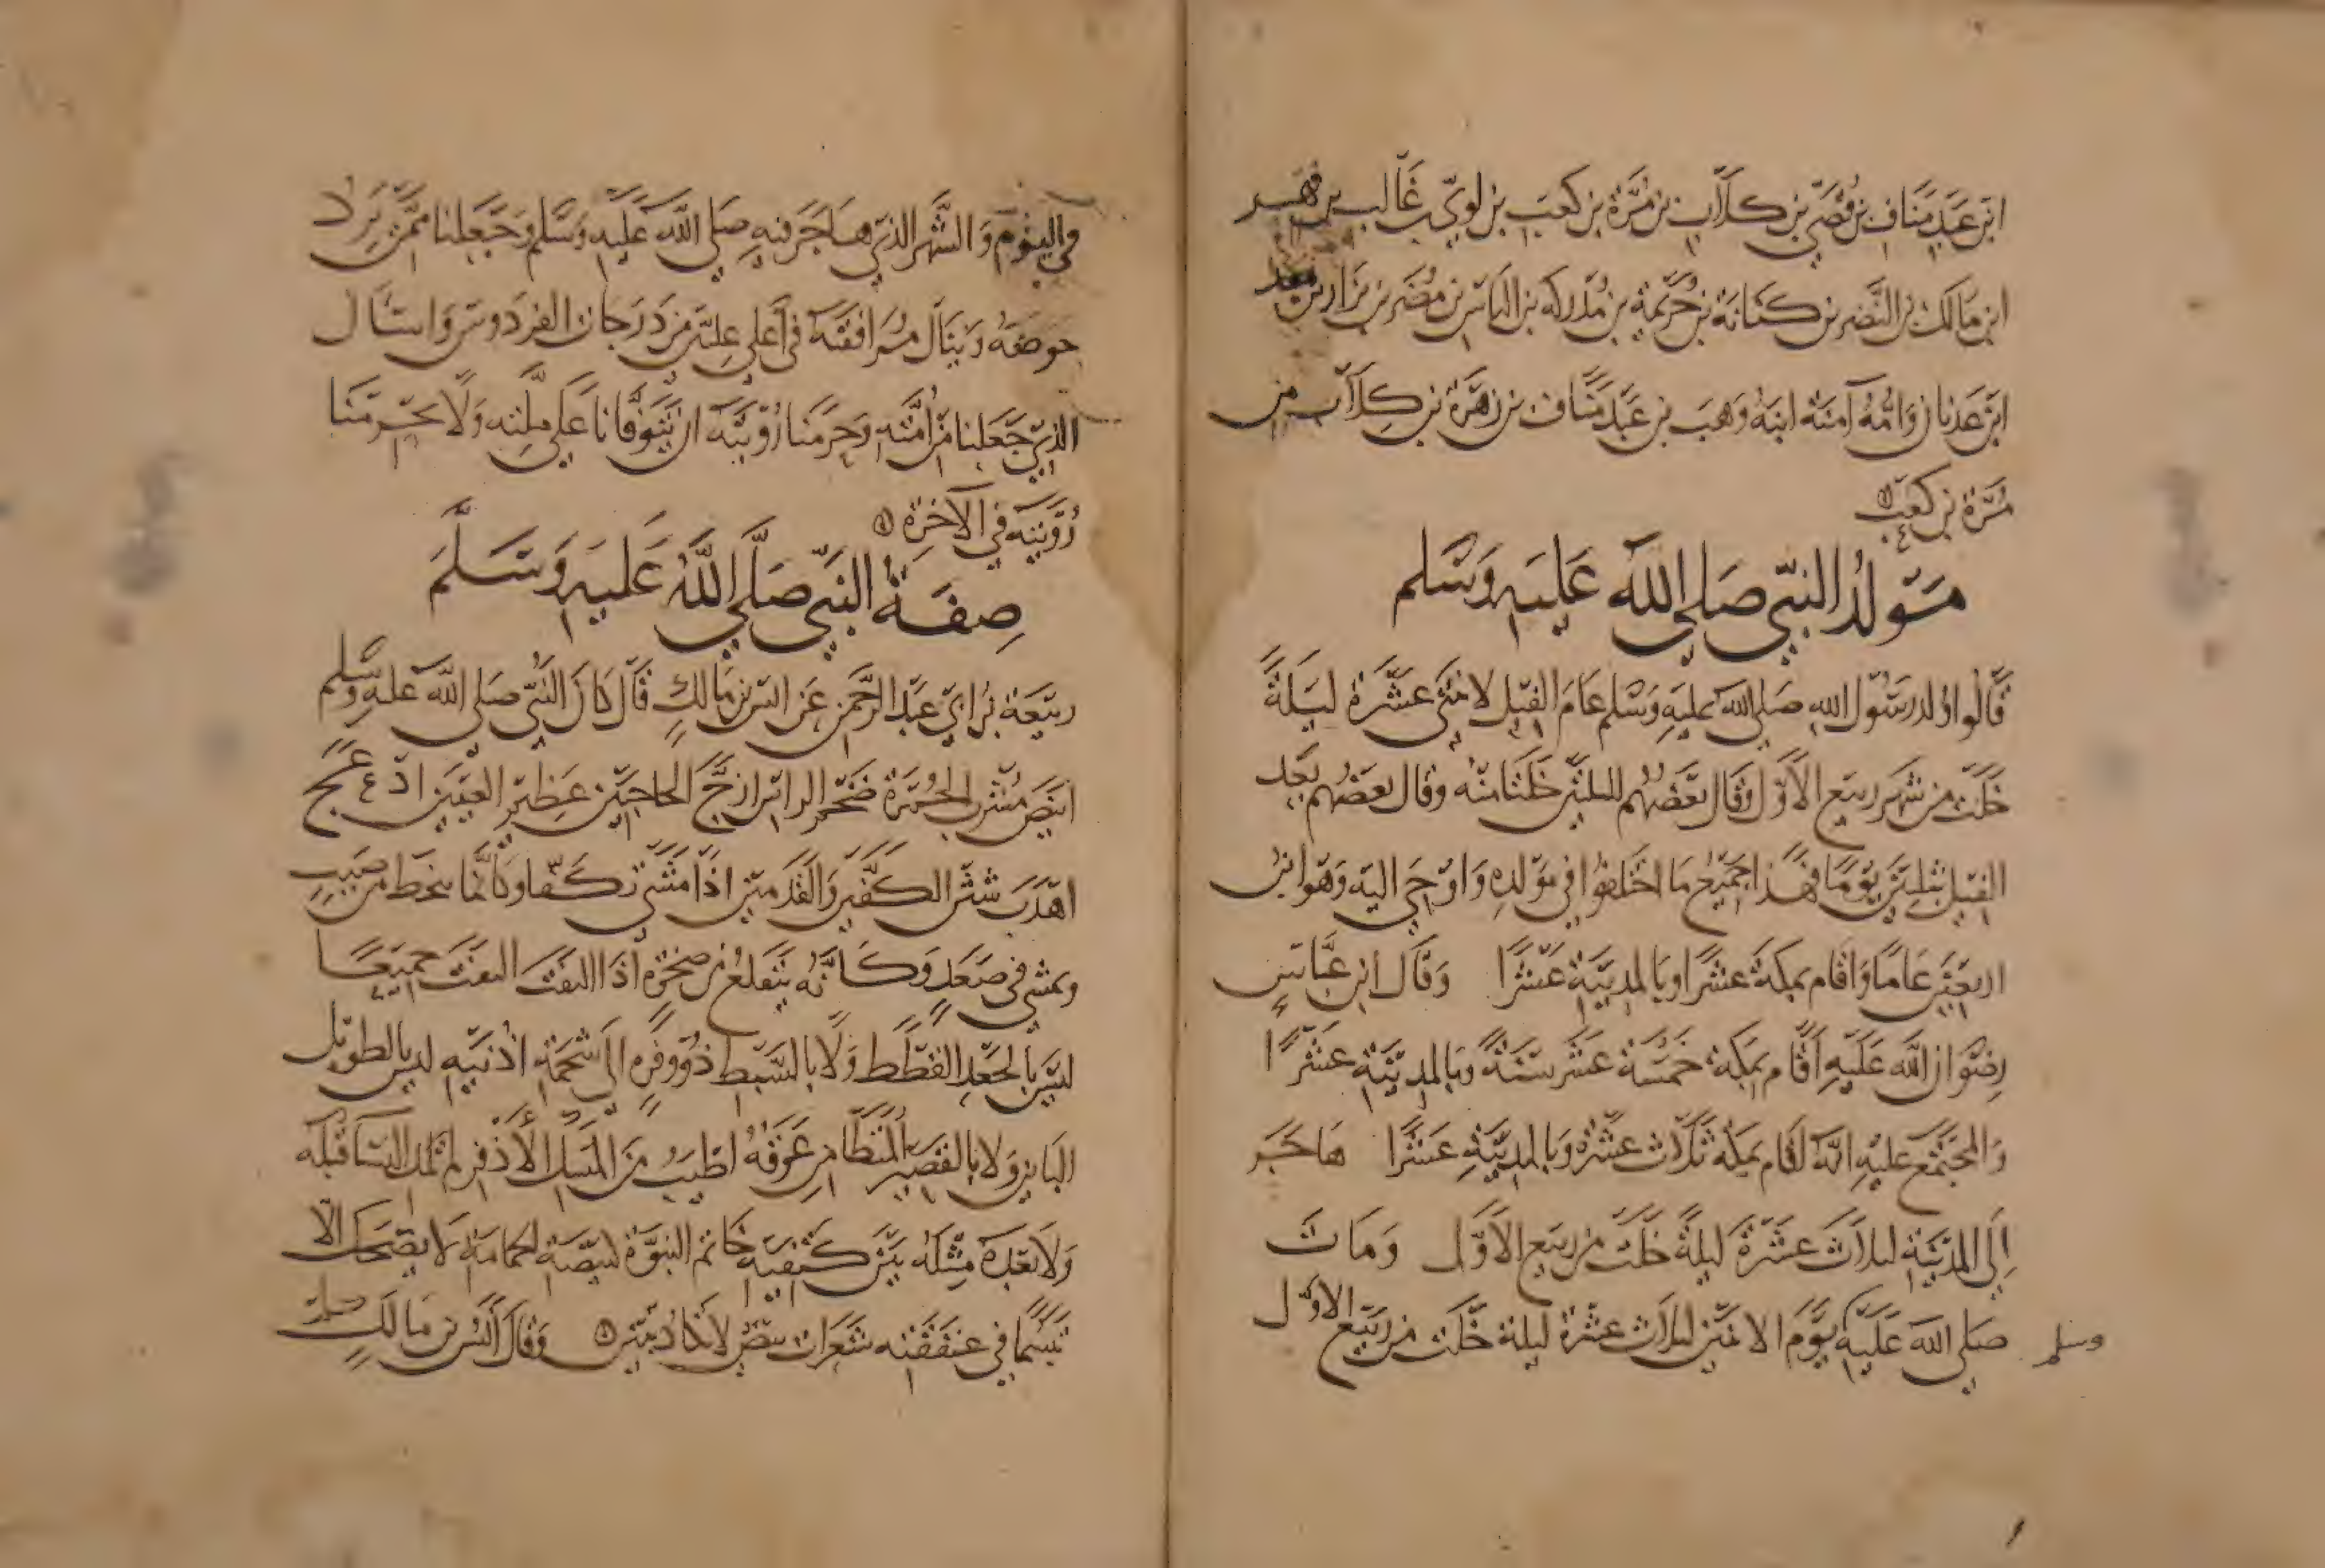 ابن عبد مناف بن قصي بن كلاب بن مرة بن كعب بن لوي بن غالب بن فهر
ابن مالك بن النضر بن كنانة بن خزيمة بن مدركه بن الياس بن مضر بن نزار بن معد
ابن عدنان وامه آمنة ابنة وهب بن عبد مناف بن زهرة بن كلاب بن
مرة بن كعب
مولد النبي صلى الله عليه وسلم
قالوا ولد رسول الله صلى الله عليه وسلم عام الفيل لاثنتي عشرة ليلة
خلت من شهر ربيع الاول وقال بعضهم لليلتين خلتا منه وقال بعضهم بعد
الفيل بثلثين يوما فهذا جميع ما اختلفوا في مولده واوحي اليه وهو ابن
اربعين عاما واقام بمكة عشرا وبالمدينة عشرا وقال ابن عباس
رضوان الله عليه اقام بمكة خمسة عشر سنة وبالمدينة عشرا
والمجتمع عليه انه اقام بمكة ثلاث عشرة وبالمدينة عشرا هاجر
الى المدينة لثلاث عشرة ليلة خلت من ربيع الاول ومات
صلى الله عليه يوم الاثنين لثلاث عشرة ليلة خلت من ربيع الاول
وسلم
في اليوم والشهر الذي هاجر فيه صلى الله عليه وسلم وجعلنا ممن يرد
حوضه وينال مرافقته في أعلى عليين من درجات الفردوس واسئال
الذي جعلنا من أمته وحرمنا رؤيته ان يتوفانا على ملته ولا يحرمنا
رؤيته في الآخرة
صفة النبي صلى الله عليه وسلم
ربيعة بن ابي عبد الرحمن عن انس بن مالك قال كان النبي صلى الله عليه وسلم
ابيض مشرب الحمرة ضخم الراس ازج الحاجبين عظيم العينين ادعج
اهدب شثن الكفين والقدمين اذا مشى تكفا وكانما ينحط من صبب
ويمشي في صعد وكانه يتقلع من صخرة اذا التفت التفت جميعا
ليس بالجعد القطط ولا بالسبط ذو وفرة الى شحمة اذنيه ليس بالطويل
الباين ولا بالقصير المتطامن عرقه اطيب من المسك الأذفر لم تلد النسا قبله
ولا بعده مثله بين كتفيه خاتم النبوة كبيضة الحمامة لا يضحك الا
تبسما في عنفقته شعرات بيض لا تكاد تبين وقال أنس بن مالك